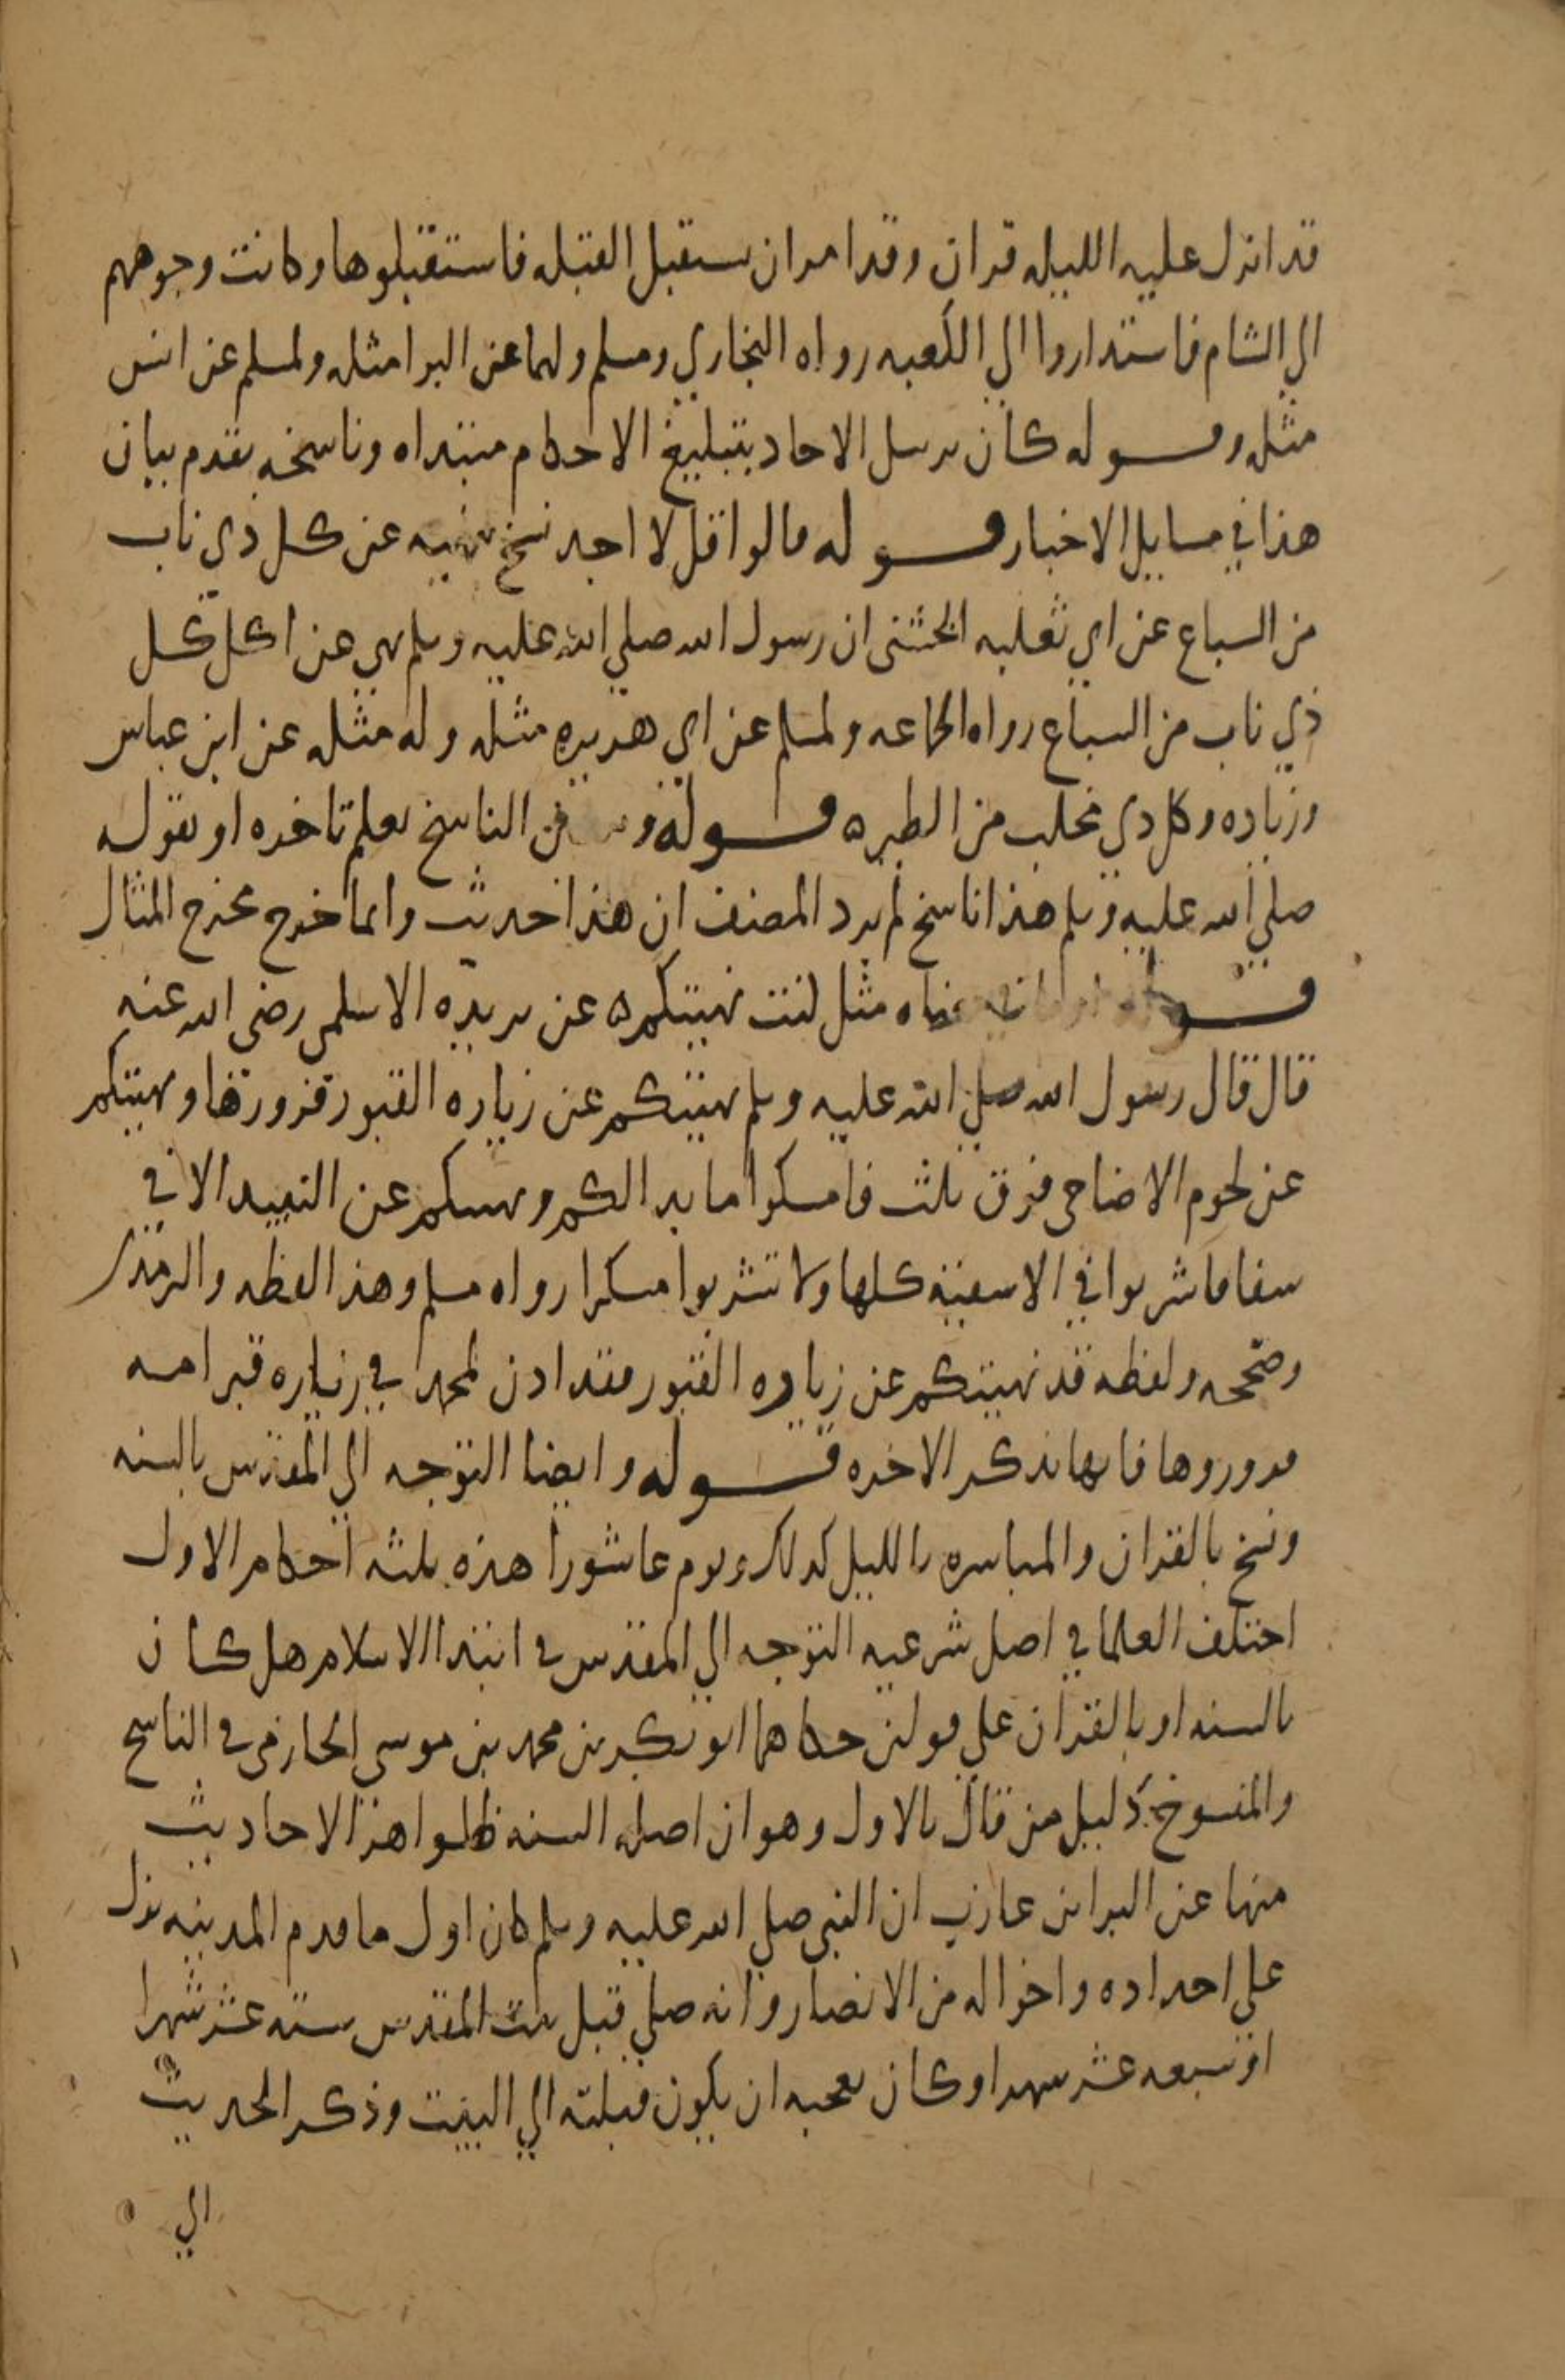 قد انزل عليه الليله قران وقد امر ان ستقبل القبله فاستقبلوها وكانت وجوههم
الي الشام فاستداروا الي الكعبه رواه البخاري ومسلم ولهما عن البرا مثله ولمسلم عن انس
مثله وقوله كان يرسل الاحاد بتبليغ الاحكام مبتداه وناسخه تقدم بيان
هذا في مسايل الاخبار قوله قالوا قل لا اجد نسخ نهيه عن كل ذي ناب
من السباع عن ابي ثعلبه الخشني ان رسول الله صلي الله عليه وسلم نهى عن اكل كل
ذي ناب من السباع رواه الجماعه ولمسلم عن ابي هريره مثله وله مثله عن ابن عباس
وزياده وكل ذي مخلب من الطيره قوله الناسخ بعلم تاخره او بقوله
صلي الله عليه وسلم هذا ناسخ لم يرد المصنف ان هذا حديث وانما خرج مخرج المثال
معناه مثل كنت نهيتكم ه عن بريده الاسلمي رضى الله عنه
قال قال رسول الله صلي الله عليه وسلم نهيتكم عن زياره القبور فزوروها ونهيتكم
عن لحوم الاضاحى فوق ثلث فامسكوا ما بدا لكم ونهيتكم عن النبيد الا في
سقا فاشربوا في الاسقية كلها ولا تشربوا مسكرا رواه مسلم وهذا لفظه والترمذي
وصححه ولفظه قد نهيتكم عن زياره القبور فقد ادن لمحمد في زياره قبر امه
فزوروها فانها تذكر الاخره قوله وايضا التوجه الي المقدس بالسنه
ونسخ بالقران والمباشره بالليل كذلك ويوم عاشورا هذه ثلثه احكام الاول
اختلف العلما في اصل شرعيه التوجه الي المقدس في ابتدا الاسلام هل كان
بالسنه او بالقران علي قولين حكاهما ابو بكر بن محمد بن موسى الحازمى في الناسخ
والمنسوخ دليل من قال بالاول وهو ان اصله السنه ظلوا هذا الاحاديث
منها عن البرا بن عازب ان النبي صلي الله عليه وسلم كان اول ما قدم المدينه نزل
علي اجداده واخواله من الانصار وانه صلي قبل بيت المقدس سته عشر شهرا
او سبعه عشر شهرا وكان يعجبه ان يكون قبلته الي البيت وذكر الحديث
الي